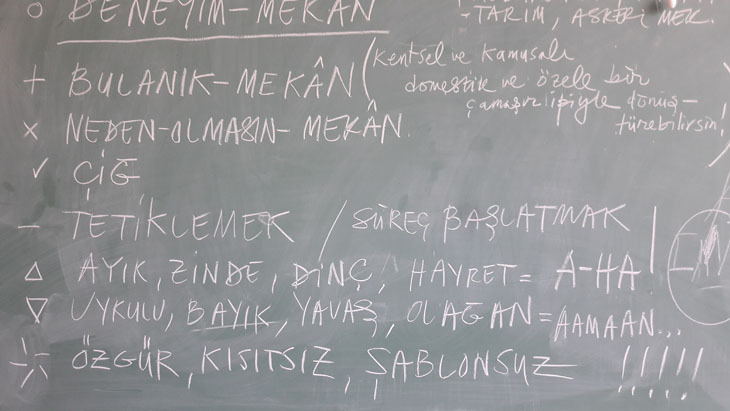 ○ DENEYİM-MEKÂN
-TARIM, ASKERİ MEK.
+ BULANIK-MEKÂN (kentsel ve kamusalı
domestik ve özele bir
çamaşır ipiyle dönüş-
türebilirsin!
× NEDEN-OLMASIN-MEKÂN.
✓ ÇİĞ
- TETİKLEMEK / SÜREÇ BAŞLATMAK
△ AYIK, ZİNDE, DİNÇ, HAYRET = A-HA!
▽ UYKULU, BAYIK, YAVAŞ, OLAĞAN = AAMAAN...
ÖZGÜR, KISITSIZ, ŞABLONSUZ !!!!!